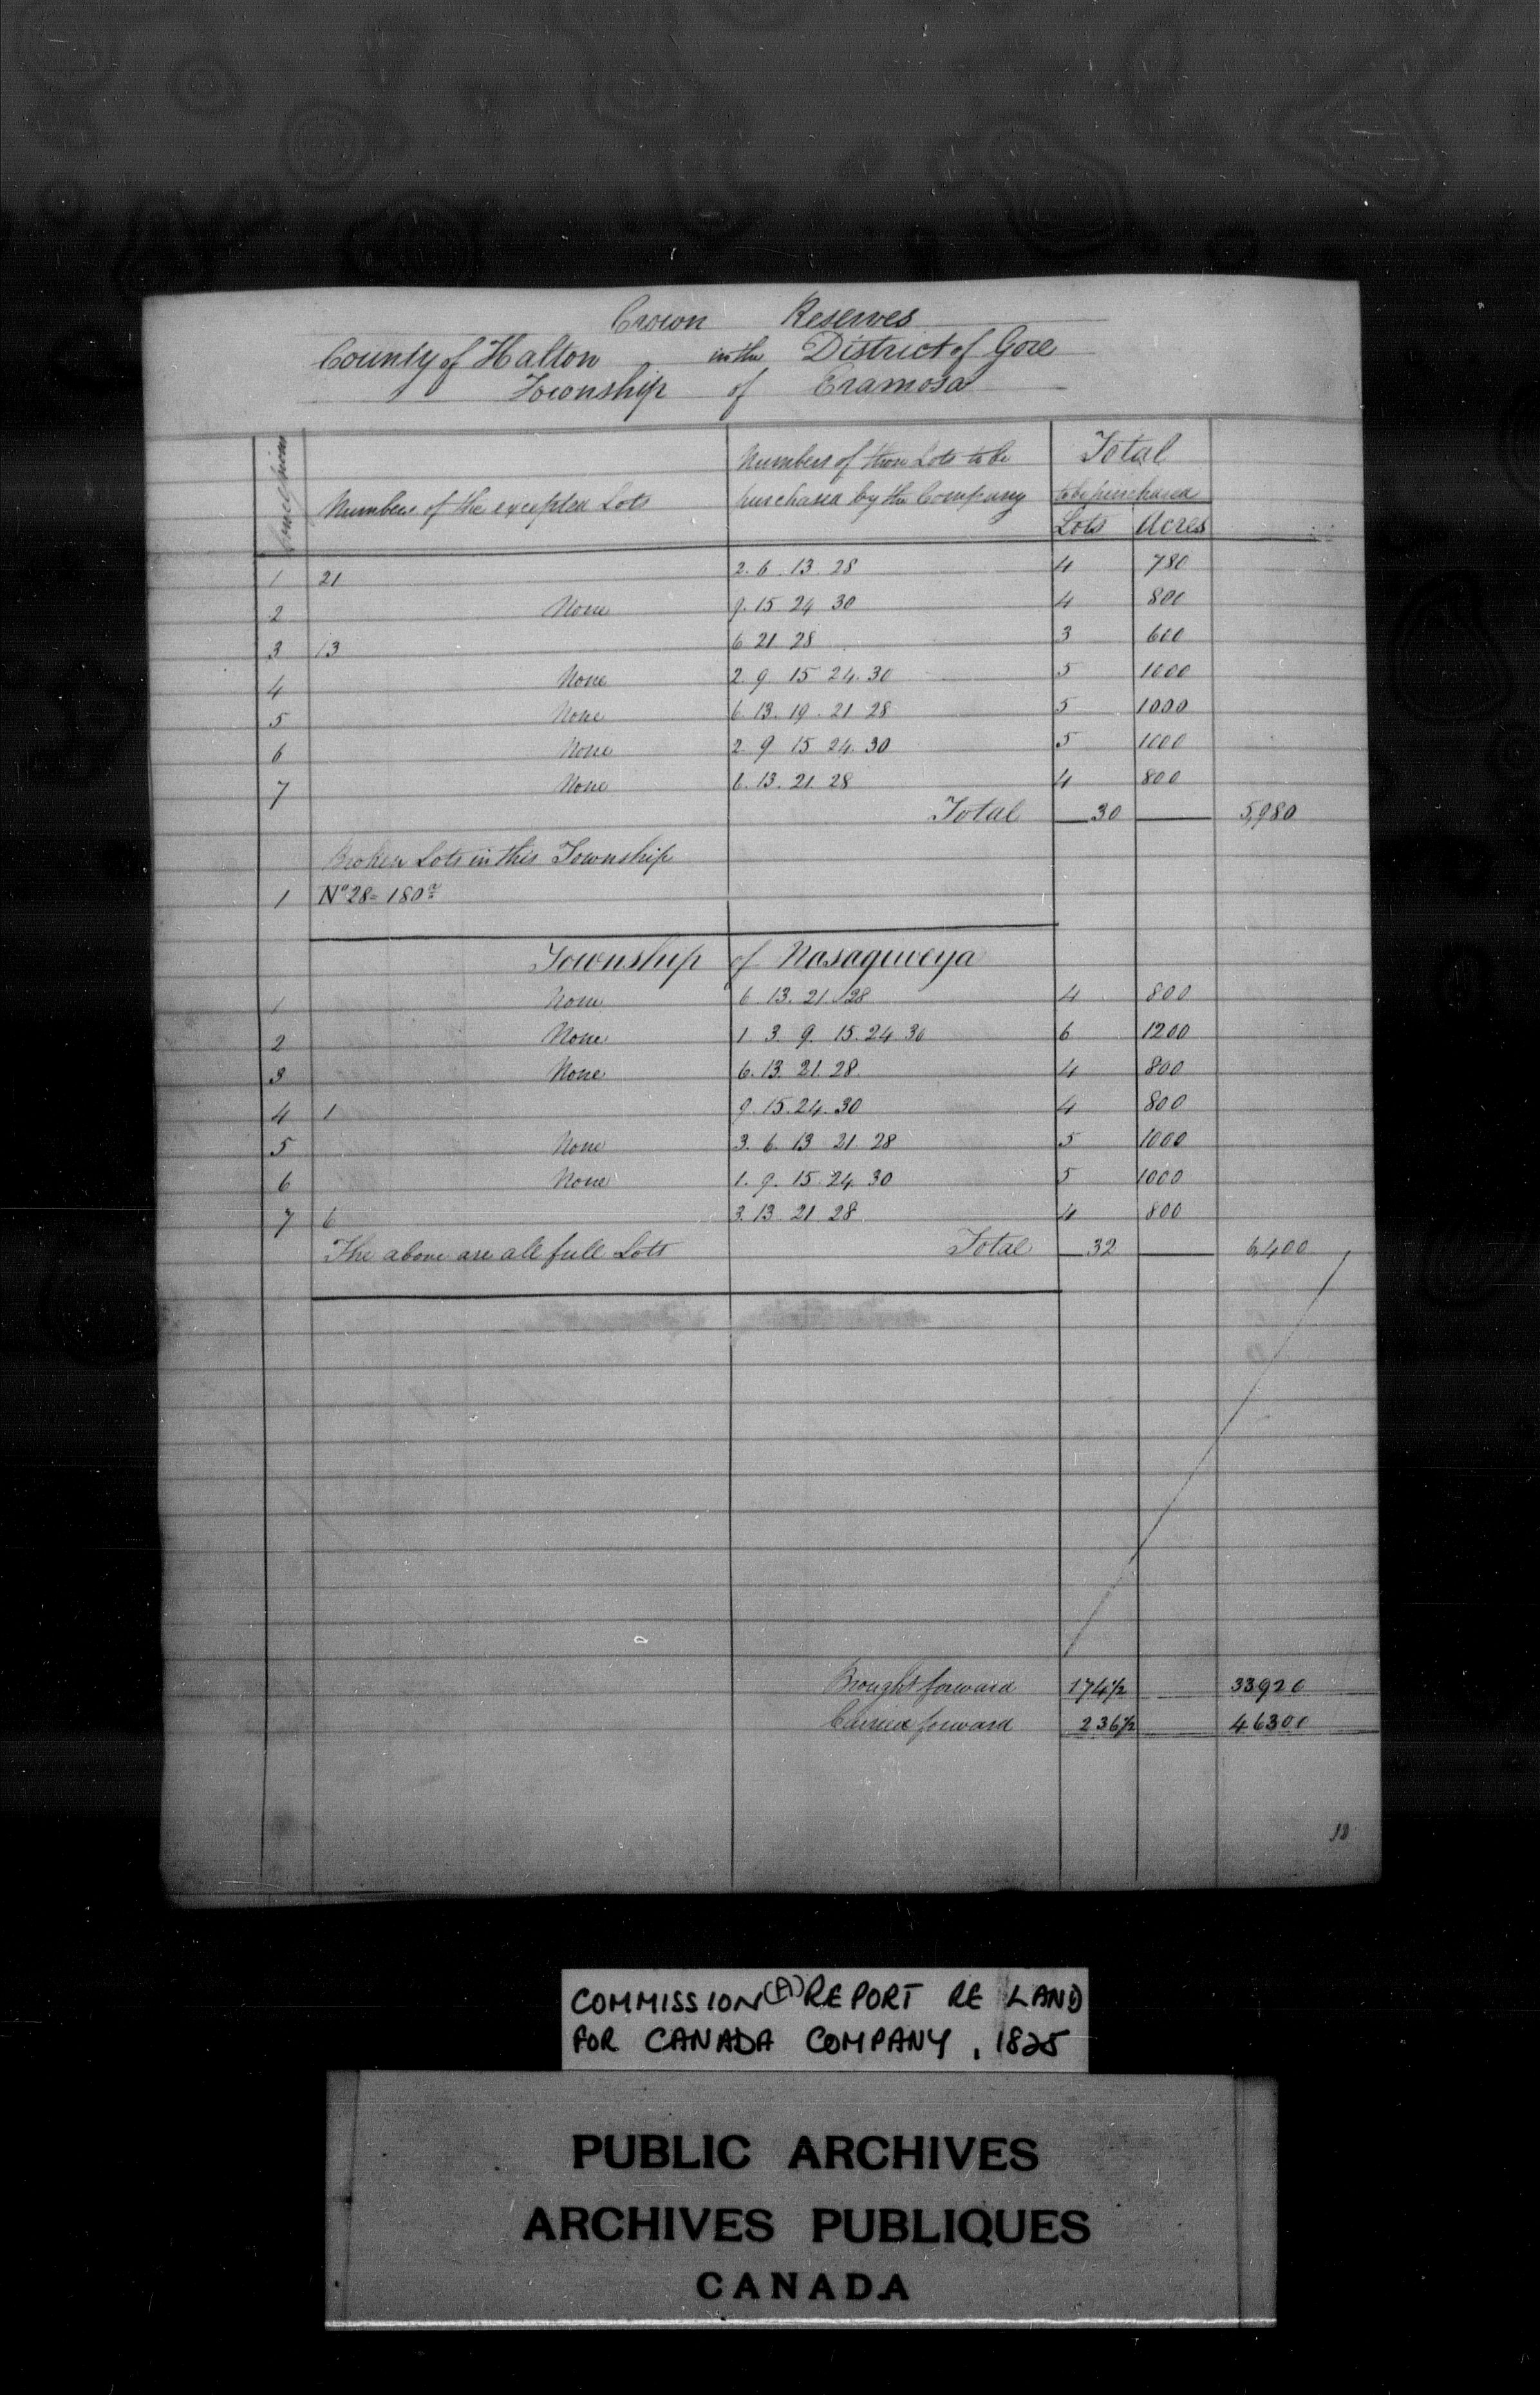 Crown Reserves
County of Halton in the District of Gore
Township of Eramosa
Concessions
Numbers of the excepted Lots
Numbers of those Lots to be
purchased by the Company
Total
to be purchased
Lots Acres
1 21 2. 6. 13. 28 4 780
2 None 9. 15 24 30 4 800
3 13 6 21 28 3 600
4 None 2 9 15 24. 30 5 1000
5 None 6. 13. 19. 21 28 5 1000
6 None 2 9 15 24. 30 5 1000
7 None 6. 13. 21. 28 4 800
Total 30 5,980
Broken Lots in this Township
1 No 28 = 180 a
Township of Nasagiweya
1 None 6. 13. 21. 28 4 800
2 None 1. 3. 9. 15. 24 30 6 1200
3 None 6. 13. 21. 28. 4 800
4 1 9. 15. 24. 30 4 800
5 None 3. 6. 13 21. 28 5 1000
6 None 1. 9. 15. 24. 30 5 1000
7 6 3. 13. 21 28 4 800
The above are all full Lots Total 32 6,400
Brought forward 174½ 33920
Carried forward 236½ 46300
COMMISSION(A) REPORT RE LAND
FOR CANADA COMPANY, 1825
PUBLIC ARCHIVES
ARCHIVES PUBLIQUES
CANADA